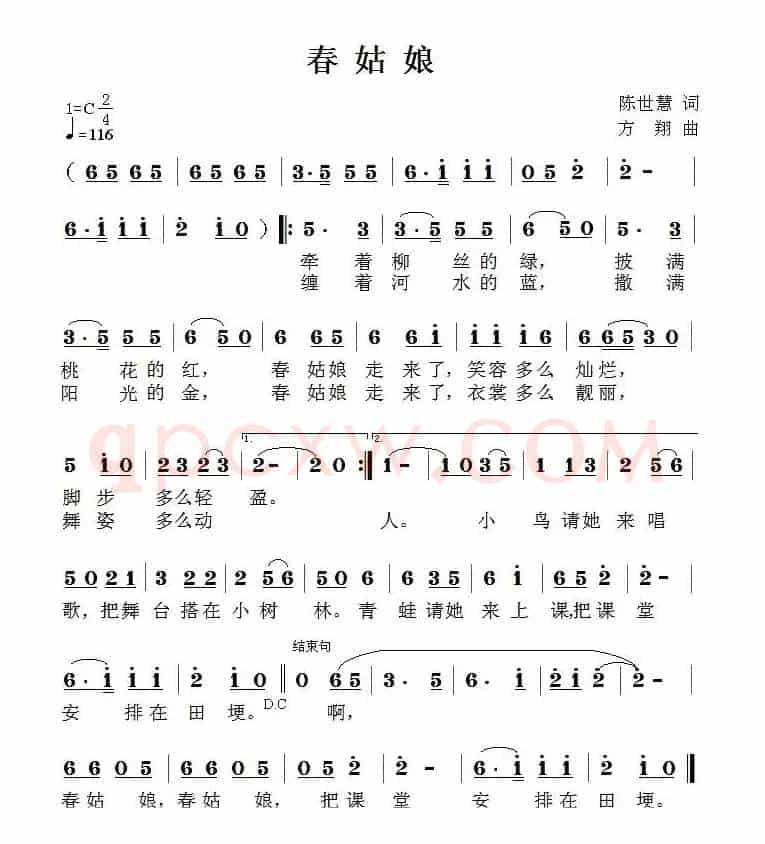 春姑娘
1=C 2/4 陈世慧 词
♩=116 方 翔 曲
( 6 5 6 5 | 6 5 6 5 | 3·5 5 5 | 6·i i i | 0 5 2̇ | 2̇ - |
6·i i i | 2̇ i 0 ) ‖: 5· 3 | 3·5 5 5 | 6 5 0 | 5· 3 |
牵 着 柳 丝 的 绿， 披 满
缠 着 河 水 的 蓝， 撒 满
3·5 5 5 | 6 5 0 | 6 6 5 6 | 6 6 i | i i i 6 | 6 6 5 3 0 |
桃 花 的 红， 春 姑 娘 走 来 了，笑 容 多 么 灿 烂，
阳 光 的 金， 春 姑 娘 走 来 了，衣 裳 多 么 靓 丽，
1. 2.
5 i 0 | 2 3 2 3 | 2 - | 2 0 :‖ 1 - | 1 0 3 5 | 1 1 3 | 2 5 6 |
脚 步 多 么 轻 盈。
舞 姿 多 么 动 人。 小 鸟 请 她 来 唱
qpcxw.COM
5 0 2 1 | 3 2 2 | 2 5 6 | 5 0 6 | 6 3 5 | 6 i | 6 5 2̇ | 2̇ 2̇ |
歌，把 舞 台 搭 在 小 树 林。青 蛙 请 她 来 上 课，把 课 堂
结束句
6·i i i | 2̇ i 0 ‖ 0 6 5 | 3· 5 | 6· i | 2̇ i 2̇ | 2̇ - |
安 排 在 田 埂。D.C 啊，
6 6 0 5 | 6 6 0 5 | 0 5 2̇ | 2̇ 2̇ | 6·i i i | 2̇ i 0 ‖
春 姑 娘，春 姑 娘， 把 课 堂 安 排 在 田 埂。